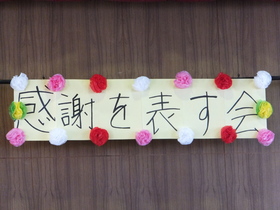 感謝を表す会